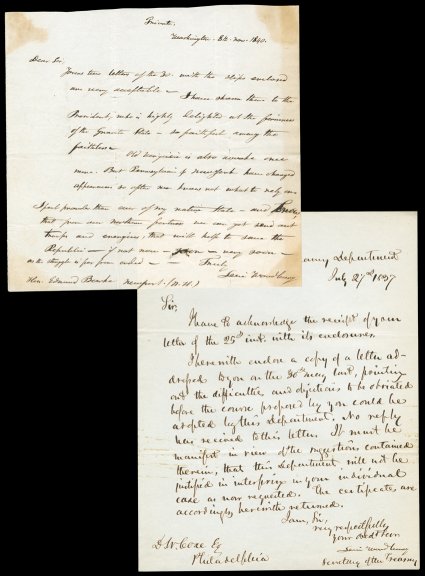 Private.
Washington. 8th Nov. 1840.
Dear Sir
Your two letters of the with the slips enclosed
are very acceptable — I have shown them to the
President, who is highly delighted at the firmness
of the Granite State — so faithful among the
faithless
Old Virginia is also awake once
more. But Pennsylvania & New York have changed
appearances so often one knows not what to rely on
I feel prouder than ever of my native State — and
that from our northern
and energies, that will help to save the
Republic — if not now — soon
as the struggle is far from ended — Truly
Levi Woodbury
Hon. Edmund Burke Newport (N.H.)
Department
July 27th 1837
Sir,
I have to acknowledge the receipt of your
letter of the 25th inst. with its enclosures.
I herewith enclose a copy of a letter ad-
dressed to you on the 30th May last, pointing
out the difficulties and objections to be obviated
before the course proposed by you could be
adopted by this Department. No reply
been received to this letter. It must be
manifest in view of the suggestions contained
therein, that this Department will not be
justified in interfering in your individual
case as now requested. The certificates are
accordingly herewith returned.
I am, Sir,
very respectfully
Your obdt Servt
Levi Woodbury
Secretary of the Treasury
D. W. Coxe Esq
Philadelphia